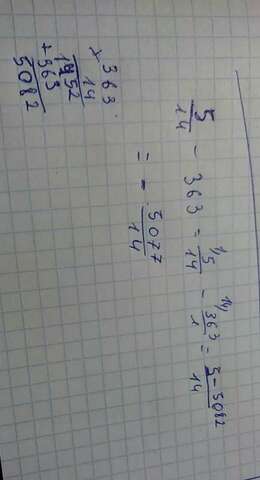 5/14 - 363 = 1/ 5/14 - 14/ 363/1 = 5-5082/14
= - 5077/14
363
× 14
1452
+363
5082